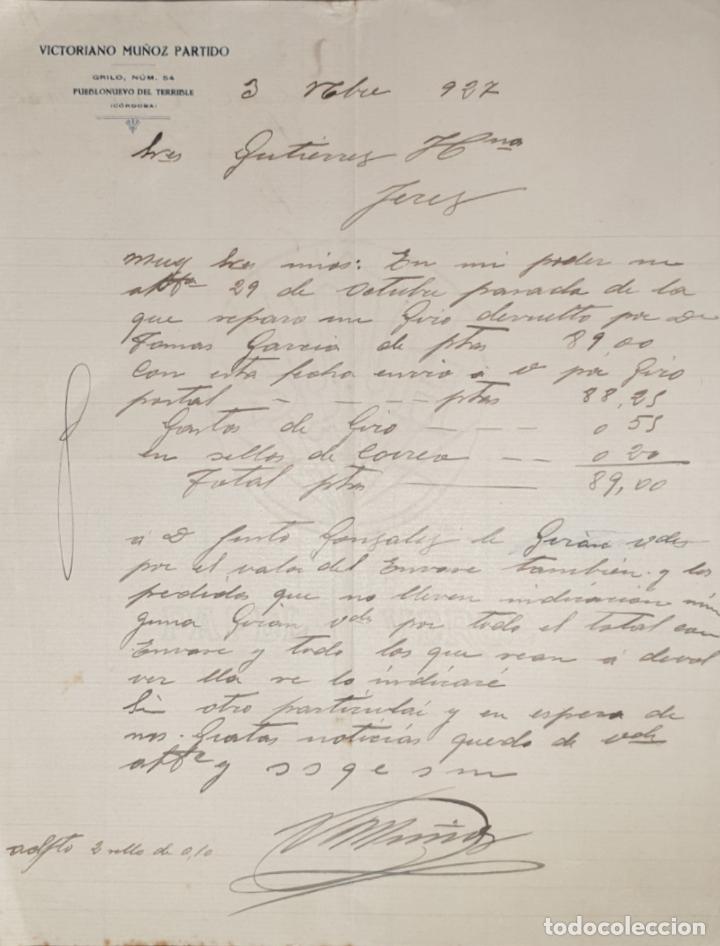 VICTORIANO MUÑOZ PARTIDO
GRILO, NÚM. 54
PUEBLONUEVO DEL TERRIBLE
(CÓRDOBA)
3 Nbre 927
Sres Gutierrez Hnos
Jerez
Muy Sres mios: En mi poder su
attª 29 de Octubre pasada de la
que reparo un Giro devuelto por Dn
Tomas Garcia de ptas 89 00
Con esta fecha envio á V por Giro
postal - - - - ptas 88,25
Gastos de Giro - - - 0 55
en sellos de Correo - - 0 20
Total ptas - 89,00
á D Justo Gonzalez le Giran Vdes
por el valor del Envase también y los
pedidos que no lleven indicación nin
guna Giran Vds por todo el total con
Envase y todo los que sean á devol
ver lla se lo indicaré
Sin otro particular y en espera de
sus Gratas noticias quedo de Vds
attº y s s q e s m
V Muñoz
adjto 2 sello de 0,10
todocoleccion
todocoleccion.net